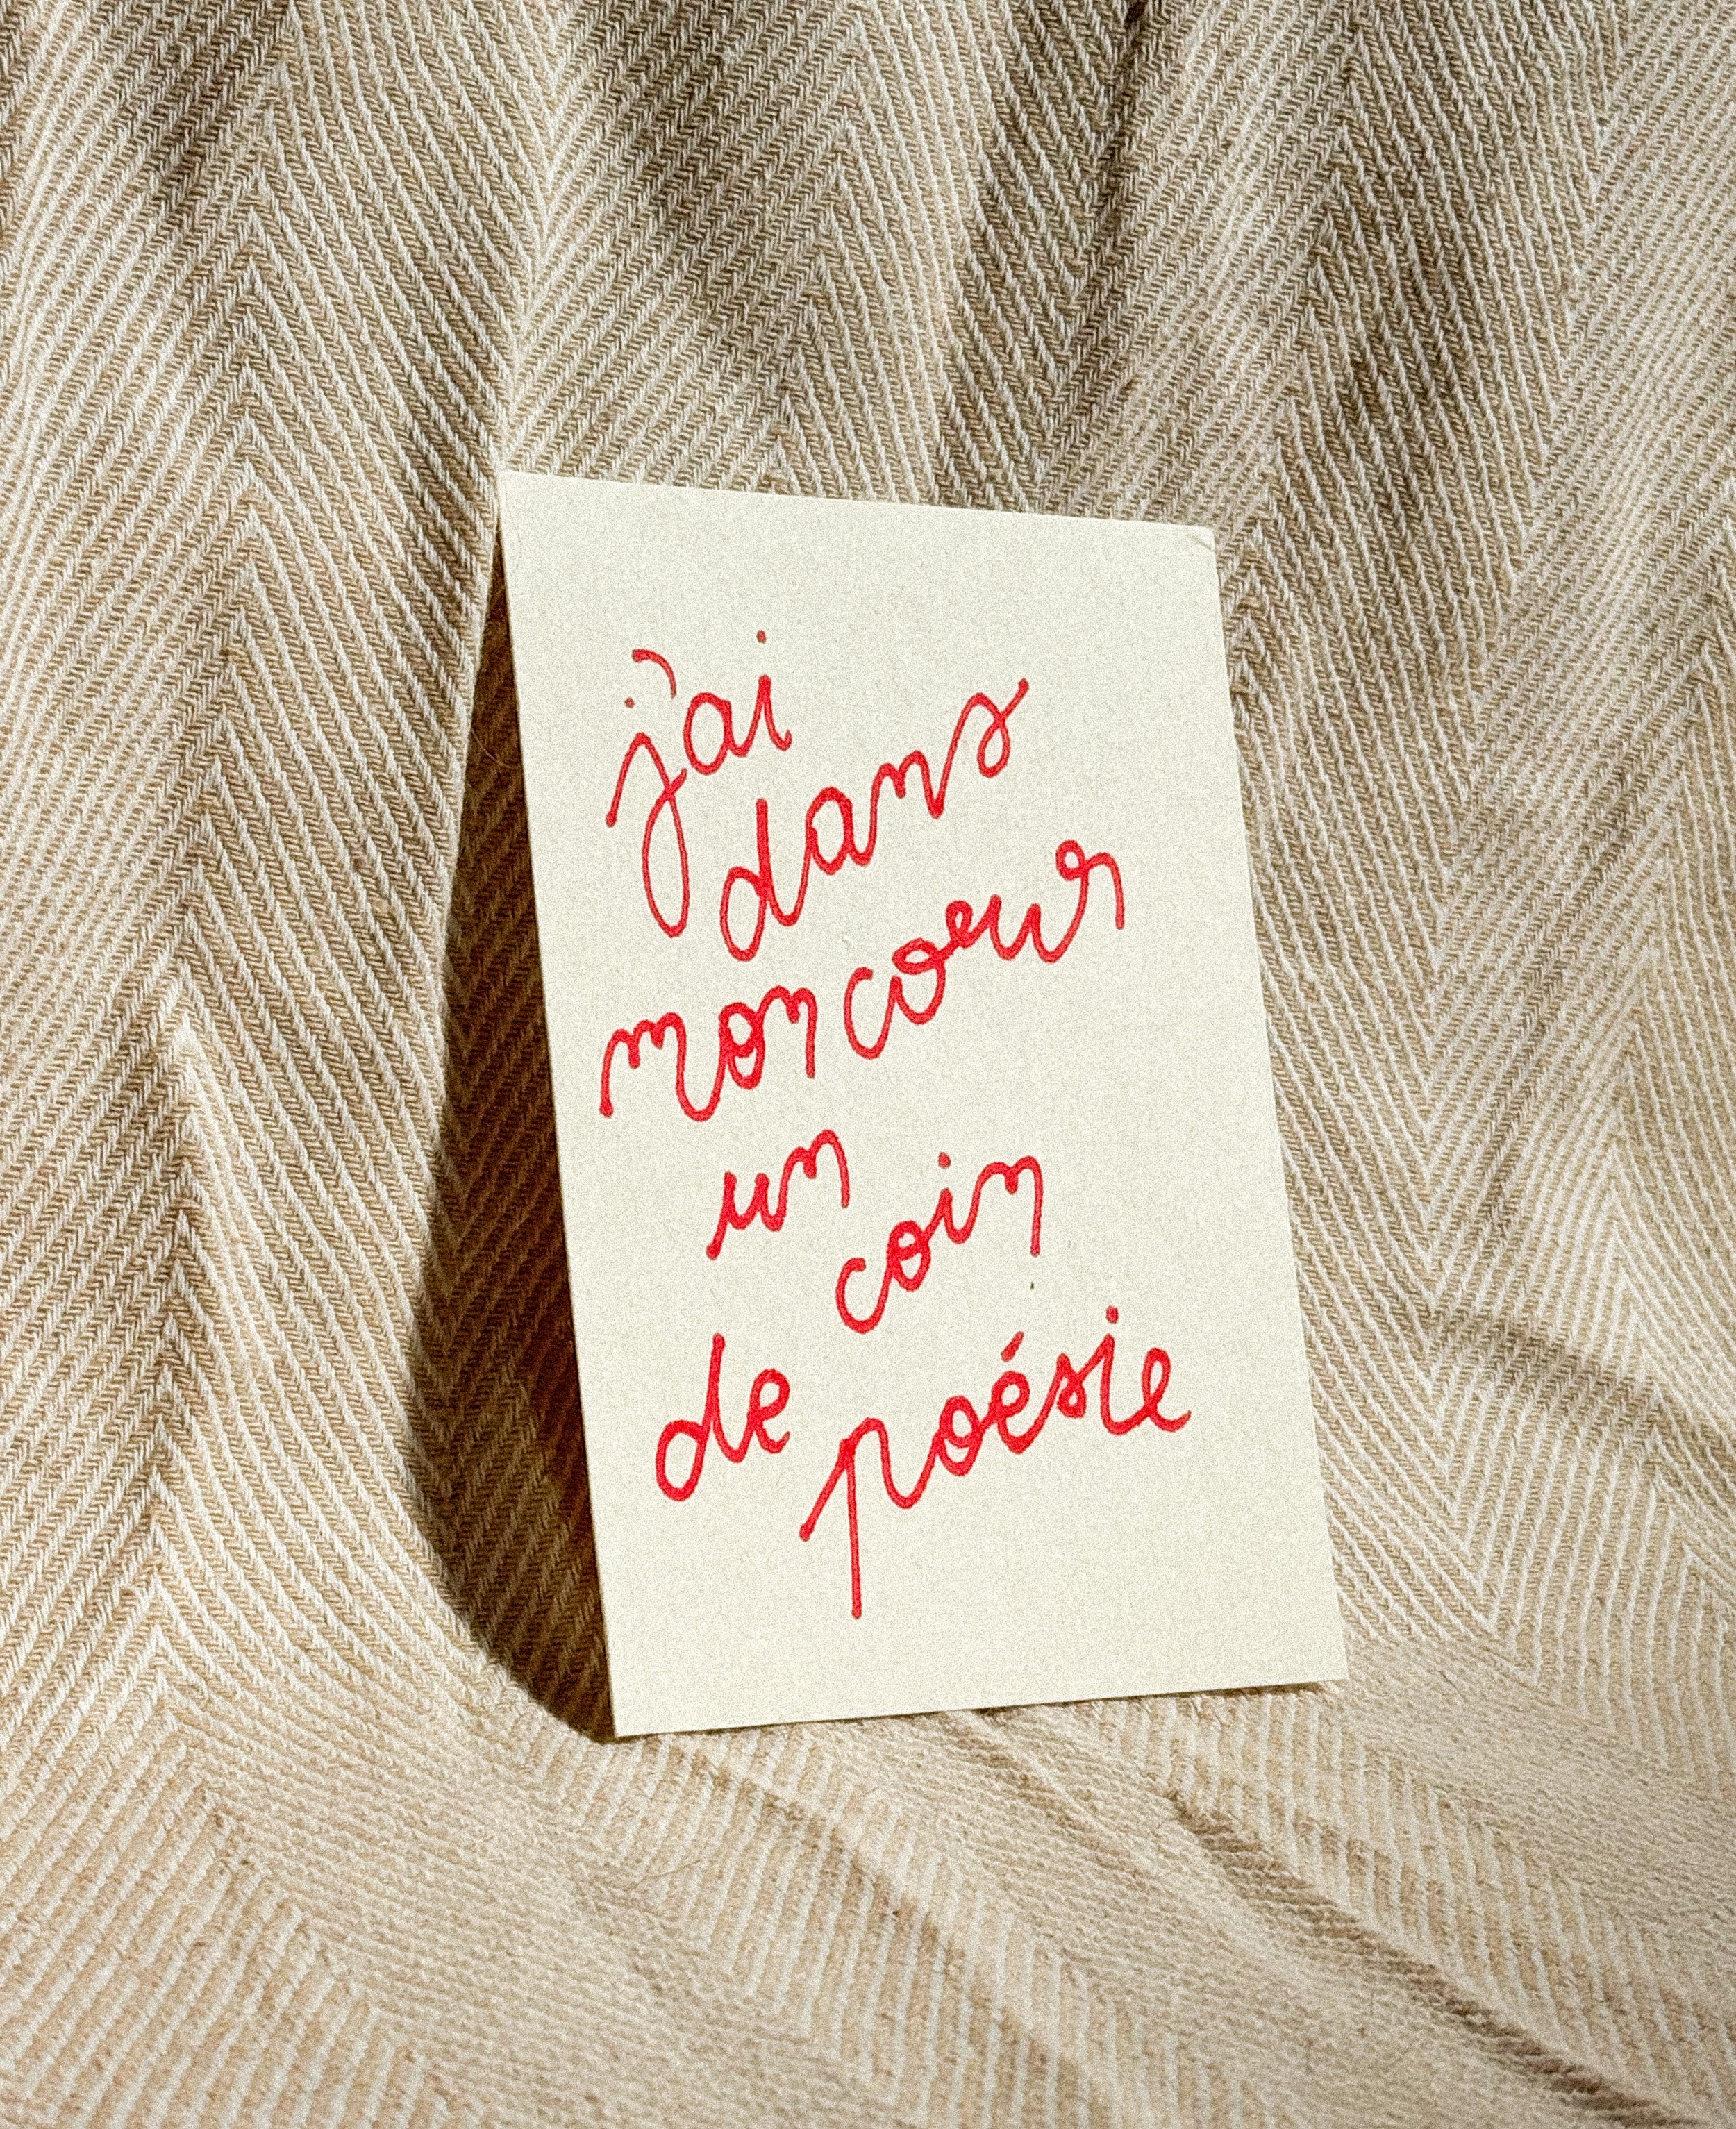 j'ai
dans
mon coeur
un
coin
de
poésie